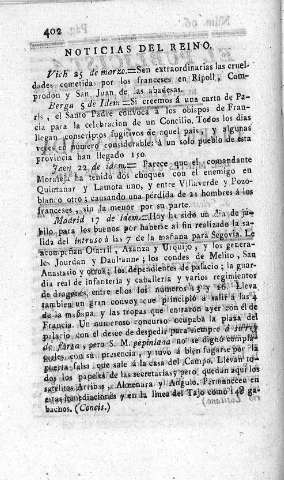 402
NOTICIAS DEL REINO.
Vich 25 de marzo.=Son extraordinarias las cruel-
dades cometidas por los franceses en Ripoll, Com-
prodon y San Juan de las abadesas.
Berga 5 de Idem.=Si creemos á una carta de Pa-
rís, el Santo Padre convoca á los obispos de Fran-
cia para la celebracion de un Concilio. Todos los dias
llegan conscriptos fugitivos de aquel pais, y algunas
veces en número considerable: á un solo pueblo de esta
provincia han llegado 150.
Jaen 22 de idem.= Parece que el comandante
Morales ha tenido dos choques con el enemigo en
Quintanar y Lamota uno, y entre Villaverde y Pozo-
blanco otro; causando una pérdida de 21 hombres á los
franceses, sin la menor por su parte.
Madrid 17 de idem.=Hoy ha sido un dia de jú-
bilo para los buenos por haberse al fin realizado la sa-
lida del intruso á las 7 de la mañana para Segovia. Le
acompañan Ofarril, Azanza y Urquijo, y los genera-
les Jourdan y Daultanne; los condes de Melito, San
Anastasio y otros; los dependientes de palacio; la guar-
dia real de infantería y caballería y varios regimientos
de dragones, entre ellos los números y 26. Lleva
tambien un gran convoy que principió á salir á las 4
de la mañana, y las tropas que entraron ayer con él de
Francia. Un numeroso concurso ocupaba la plaza del
palacio con el deseo de despedir para siempre á
de farsa, pero S. M. pepiniana no se dignó compla-
cerlos con su presencia, y tuvo á bien fugarse por la
puerta falsa que sale á la casa del Campo. Llevan to-
dos los papeles de las secretarías; pero quedan aquí los
satélites Arribas, Almenara y Angulo. Permanecen en
estas inmediaciones y en la línea del Tajo como 14@ ga-
bachos. (Concis.)